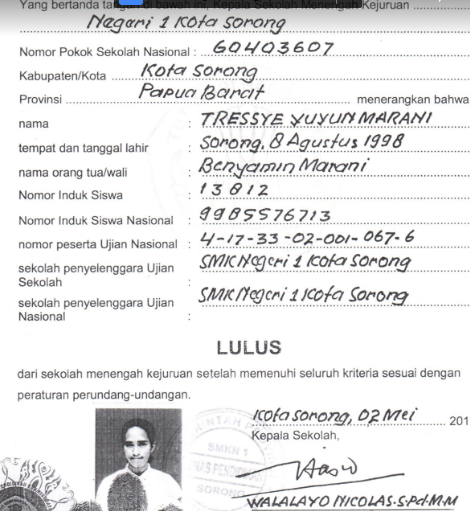 Yang bertanda tangan di bawah ini, Kepala Sekolah Menengah Kejuruan
Negeri 1 Kota Sorong
Nomor Pokok Sekolah Nasional : 60403607
Kabupaten/Kota Kota Sorong
Provinsi Papua Barat menerangkan bahwa
nama : TRESSYE YUYUN MARANI
tempat dan tanggal lahir : Sorong, 8 Agustus 1998
nama orang tua/wali : Benyamin Marani
Nomor Induk Siswa : 13812
Nomor Induk Siswa Nasional : 9985576713
nomor peserta Ujian Nasional : 4-17-33-02-001-067-6
sekolah penyelenggara Ujian Sekolah : SMK Negeri 1 Kota Sorong
sekolah penyelenggara Ujian Nasional : SMK Negeri 1 Kota Sorong
LULUS
dari sekolah menengah kejuruan setelah memenuhi seluruh kriteria sesuai dengan
peraturan perundang-undangan.
Kota Sorong, 02 Mei 201
Kepala Sekolah,
SMKN 1
SORONG
WALALAYO NICOLAS.S.Pd.M.M